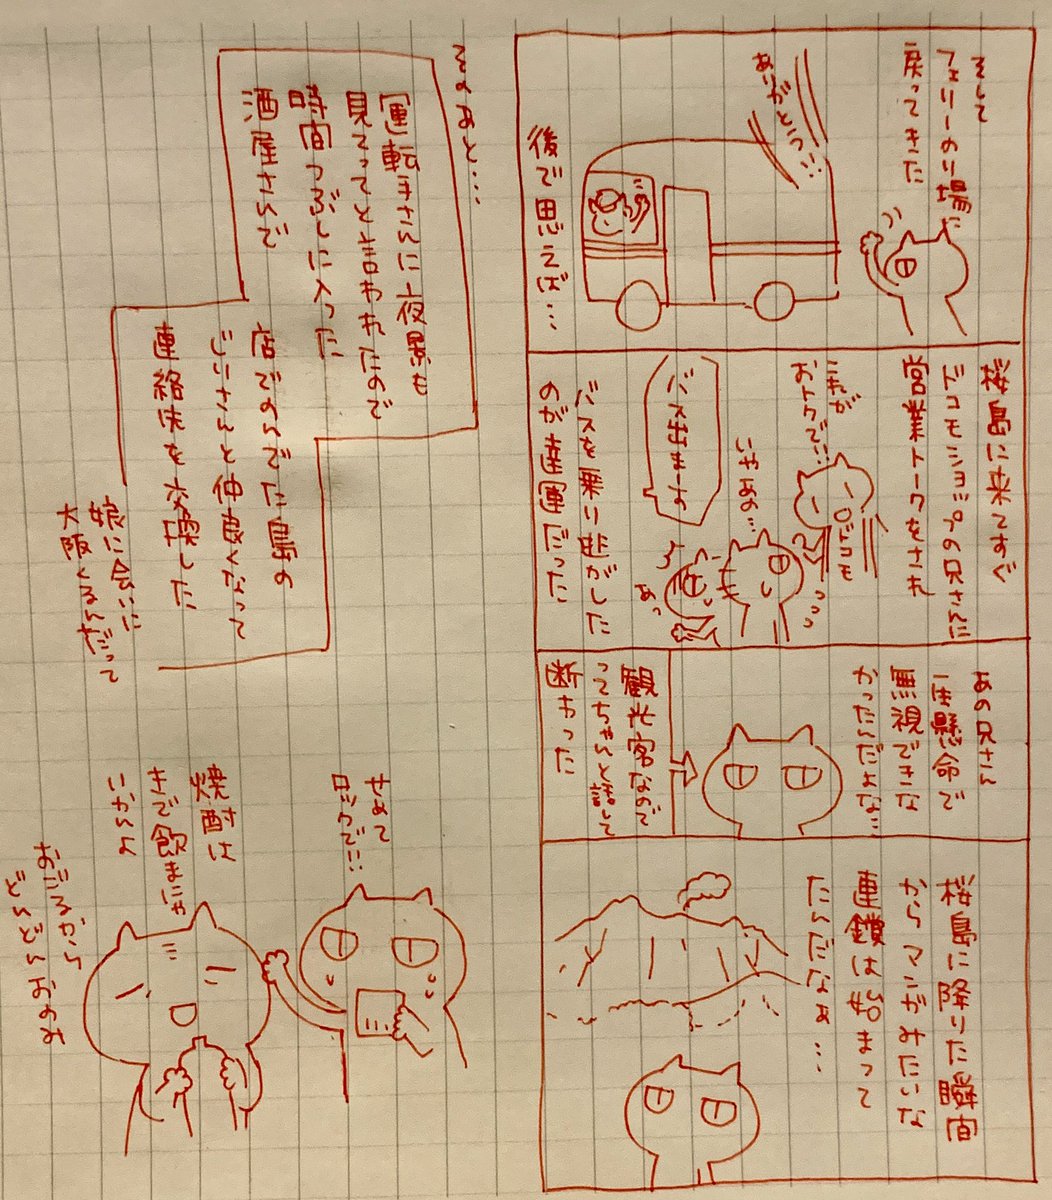 そして
フェリーのり場に
戻ってきた
ありがとう!!
後で思えば…
桜島に来てすぐ
ドコモショップの兄さんに
営業トークをされ
これが
おトクで!!
ドコモ
いやあの…
バス出ますの
あっ
バスを乗り逃がした
のが運だった
あの兄さん
一生懸命で
無視できな
かったんだよな…
観光客なので
ってちゃんと話して
断わった
桜島に降りた瞬間
からマンガみたいな
連鎖は始まって
たんだなぁ…
そのあと…
運転手さんに夜景も
見てってと言われたので
時間つぶしに入った
酒屋さんで
店でのんでた島の
じいさんと仲良くなって
連絡先を交換した
娘に会いに
大阪くるんだって
せめて
ロックで!!
焼酎は
きで飲まにゃ
いかんよ
おごるから
どんどんおのみ